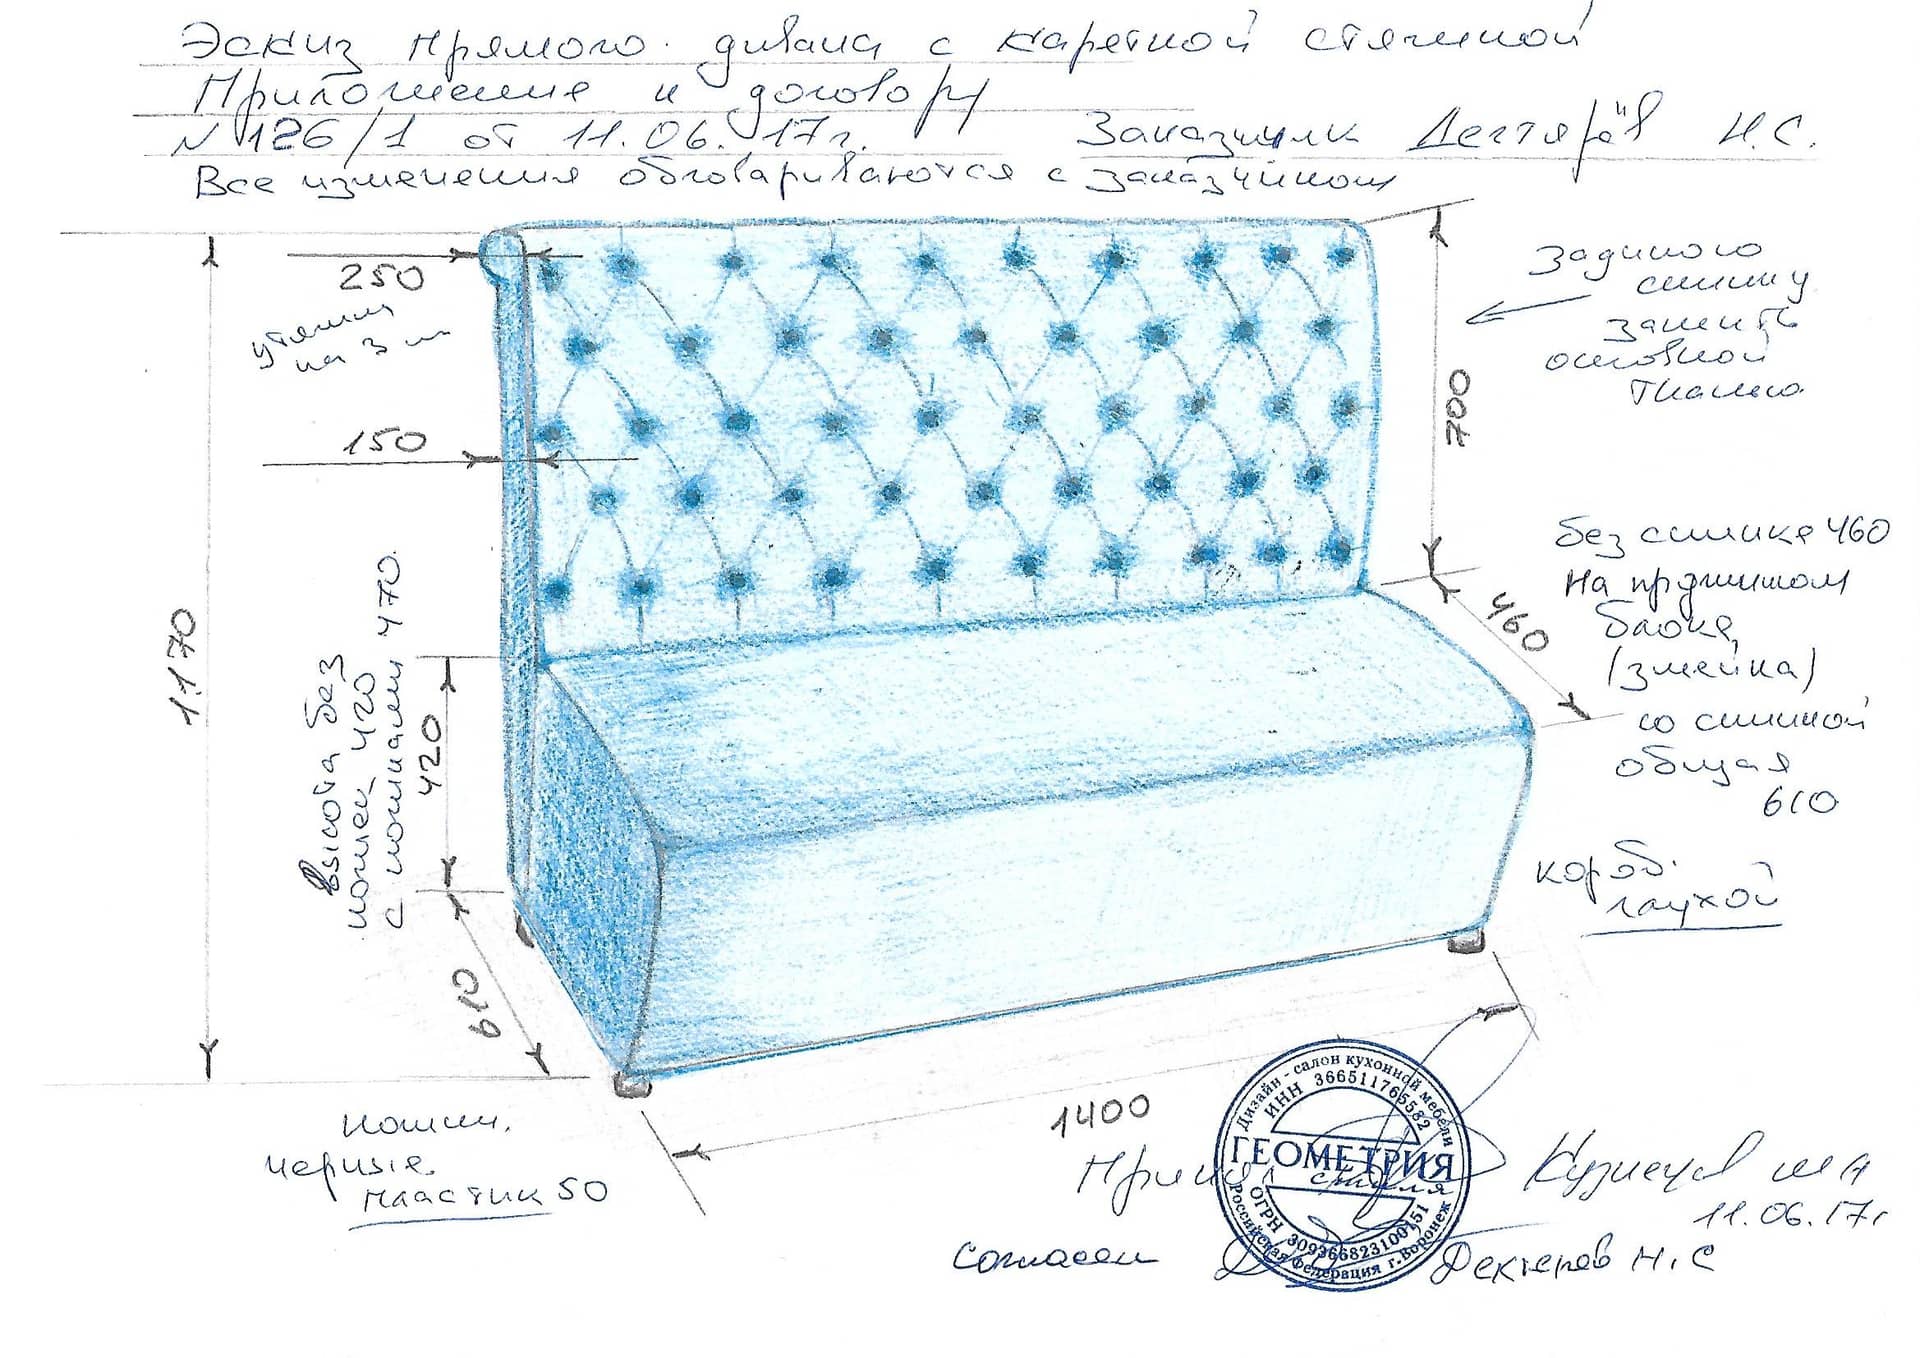 Эскиз прямого дивана с каретной стяжкой
Приложение к договору
N 126/1 от 11.06.17г.
Заказчик Дегтярёв Н.С.
Все изменения обговариваются с заказчиком
250
утяжки
на 3 
150
1170
Высота без
ножек 420
с ножками 470
420
610
Заднюю
спинку
зашить
основной
тканью
700
460
без спинки 460
на пружинном
блоке
(змейка)
со спинкой
общая
610
короб
глухой
1400
ножки
черные
пластик 50
Принял
Кузнецов
11.06.17г
согласен
Н.С
Дизайн - салон кухонной мебели
ИНН 366511765582
ГЕОМЕТРИЯ
стиля
ОГРН
Российская Федерация г. Воронеж